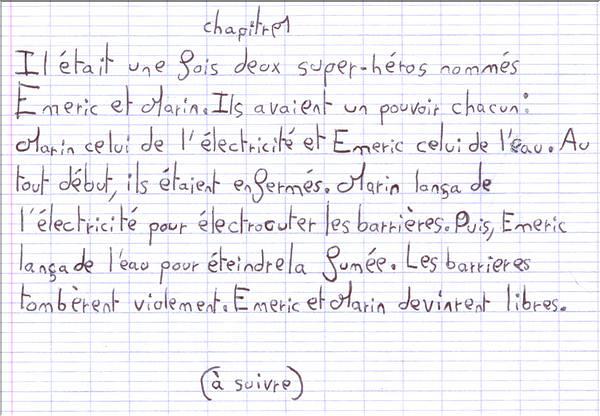 chapitre1
Il était une fois deux super-héros nommés
Emeric et Marin. Ils avaient un pouvoir chacun:
Marin celui de l'électricité et Emeric celui de l'eau. Au
tout début, ils étaient enfermés. Marin lança de
l'électricité pour électrocuter les barrières. Puis, Emeric
lança de l'eau pour éteindre la fumée. Les barrieres
tombèrent violement. Emeric et Marin devinrent libres.
(à suivre)